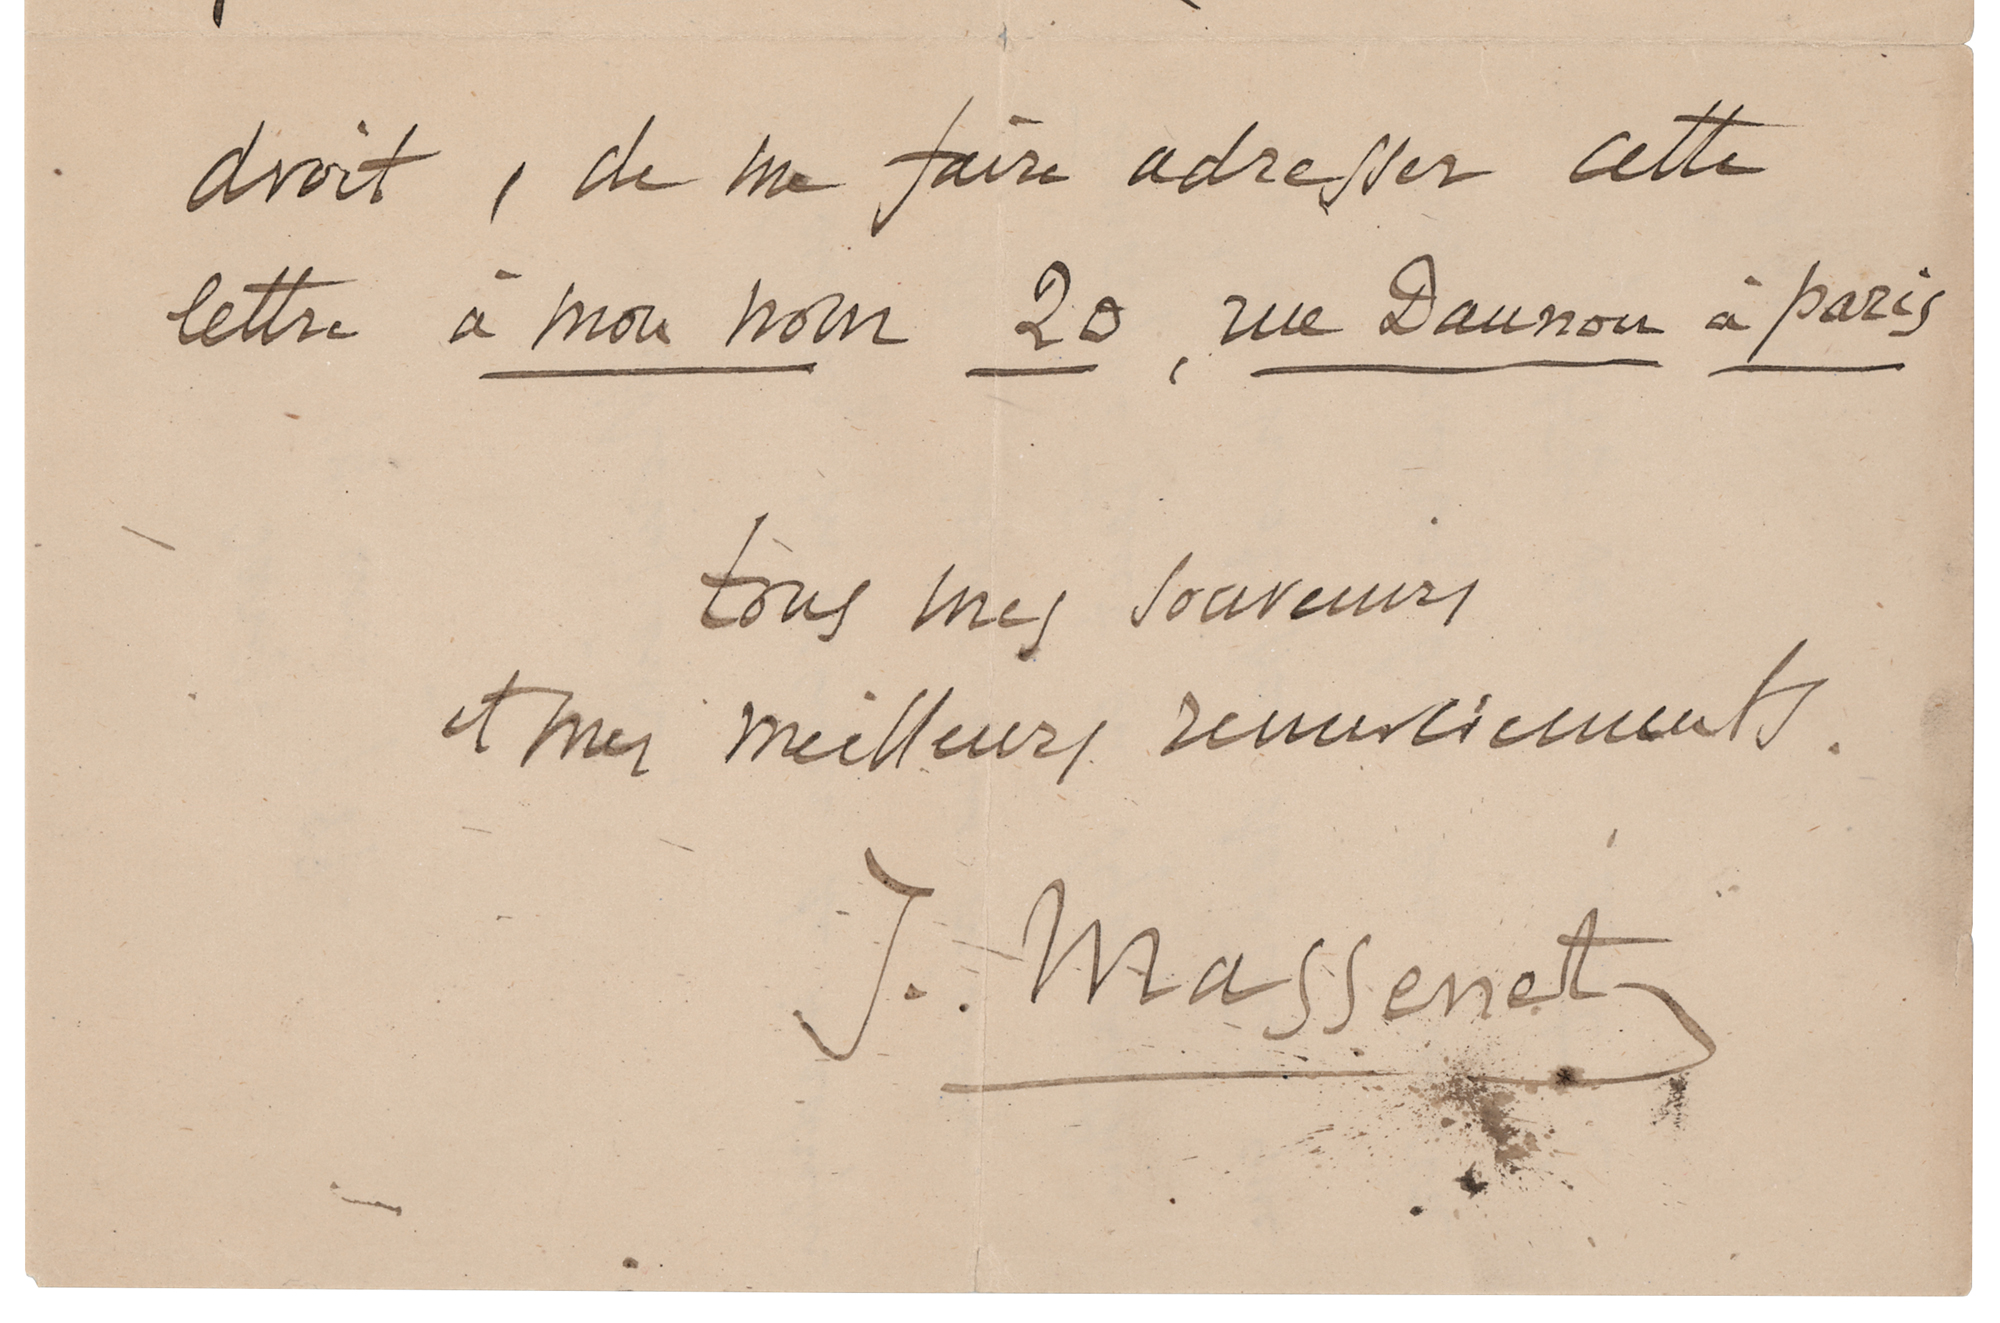 droit, de me faire adresser cette
lettre à mon nom 20, rue Daunou à paris
tous mes souvenirs
et mes meilleurs remerciements.
J. Massenet